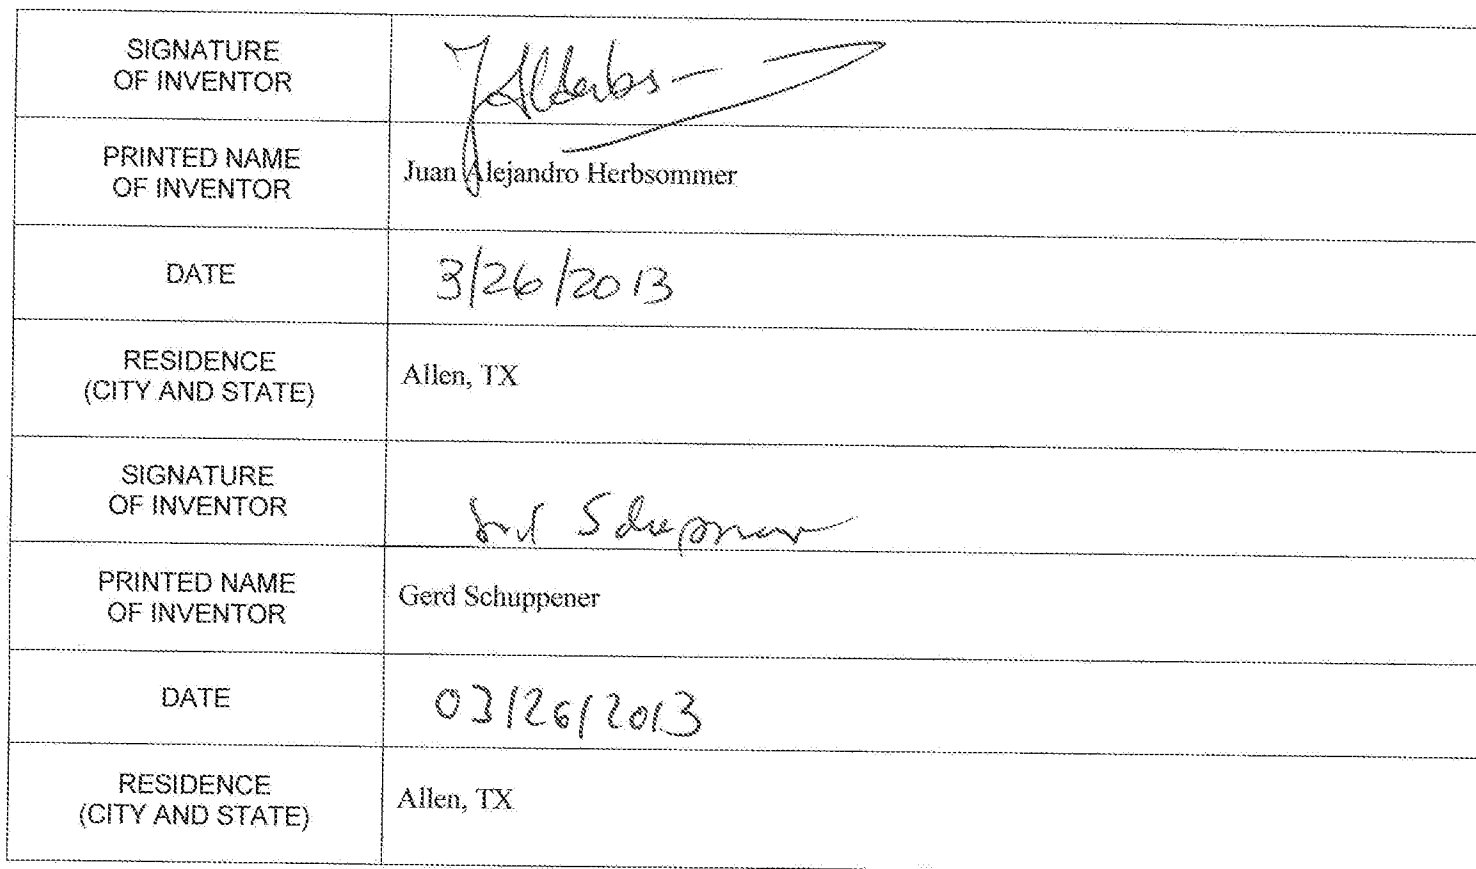 SIGNATURE
OF INVENTOR
PRINTED NAME
OF INVENTOR
Juan Alejandro Herbsommer
DATE
3/26/2013
RESIDENCE
(CITY AND STATE)
Allen, TX
SIGNATURE
OF INVENTOR
Gerd Schuppener
PRINTED NAME
OF INVENTOR
Gerd Schuppener
DATE
03/26/2013
RESIDENCE
(CITY AND STATE)
Allen, TX